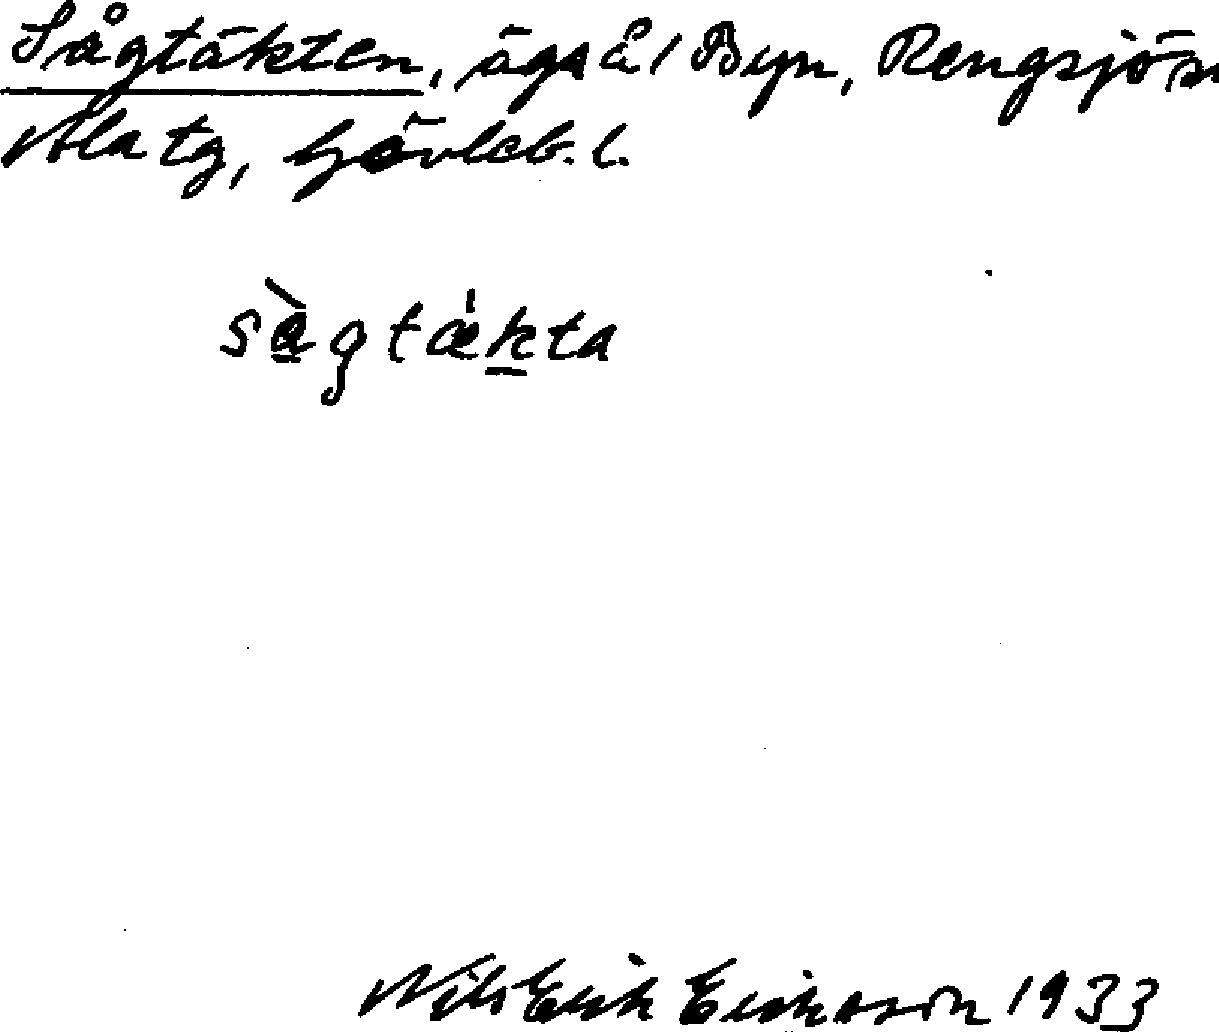 Sågtäkten, äga å 1 Byn, Rengsjö sn
Ala tg, Gävleb. l.
sàgtækta
Nils Erik Eriksson 1933